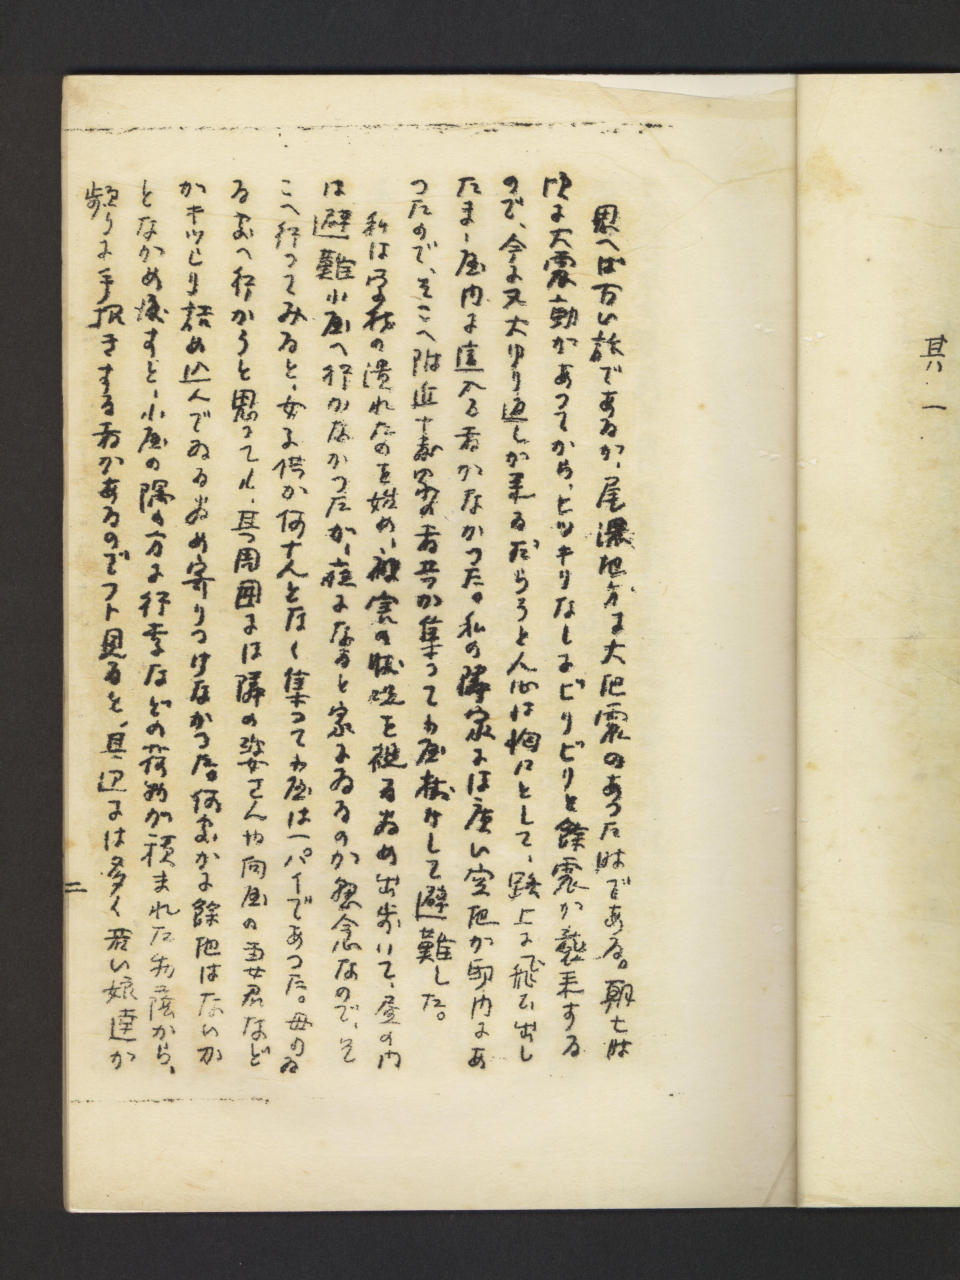 其ノ一
思へば古い話であるが、尾濃地方に大地震のあった時である。朝七時
頃に大震動があってから、ヒッキリなしにビリビリと餘震が襲来する
ので、今に又大ゆり返しが来るだらうと人心は恟々として、路上に飛び出し
たまゝ屋内に這入る者がなかった。私の隣家には広い空地が邸内にあ
ったので、そこへ附近十数家の者共が集って小屋掛けして避難した。
私は学校の潰れたのを始め、被害の状況を視る為め出歩いて、昼の内
は避難小屋へ行かなかったが、夜になると家にゐるのが懸念なので、そ
こへ行ってみると、女子供が何十人となく集って小屋は一パイであった。母のゐ
る処へ行かうと思っても、其周囲には隣の婆さんや向屋の妻君など
がギッシリ詰め込んでゐる為め寄りつけなかった。何処かに餘地はないか
となかめ廻すと、小屋の隅の方に行李などの荷物が積まれた物蔭から、
頻りに手招きする者があるのでフト見ると、其辺には多く若い娘達が
二